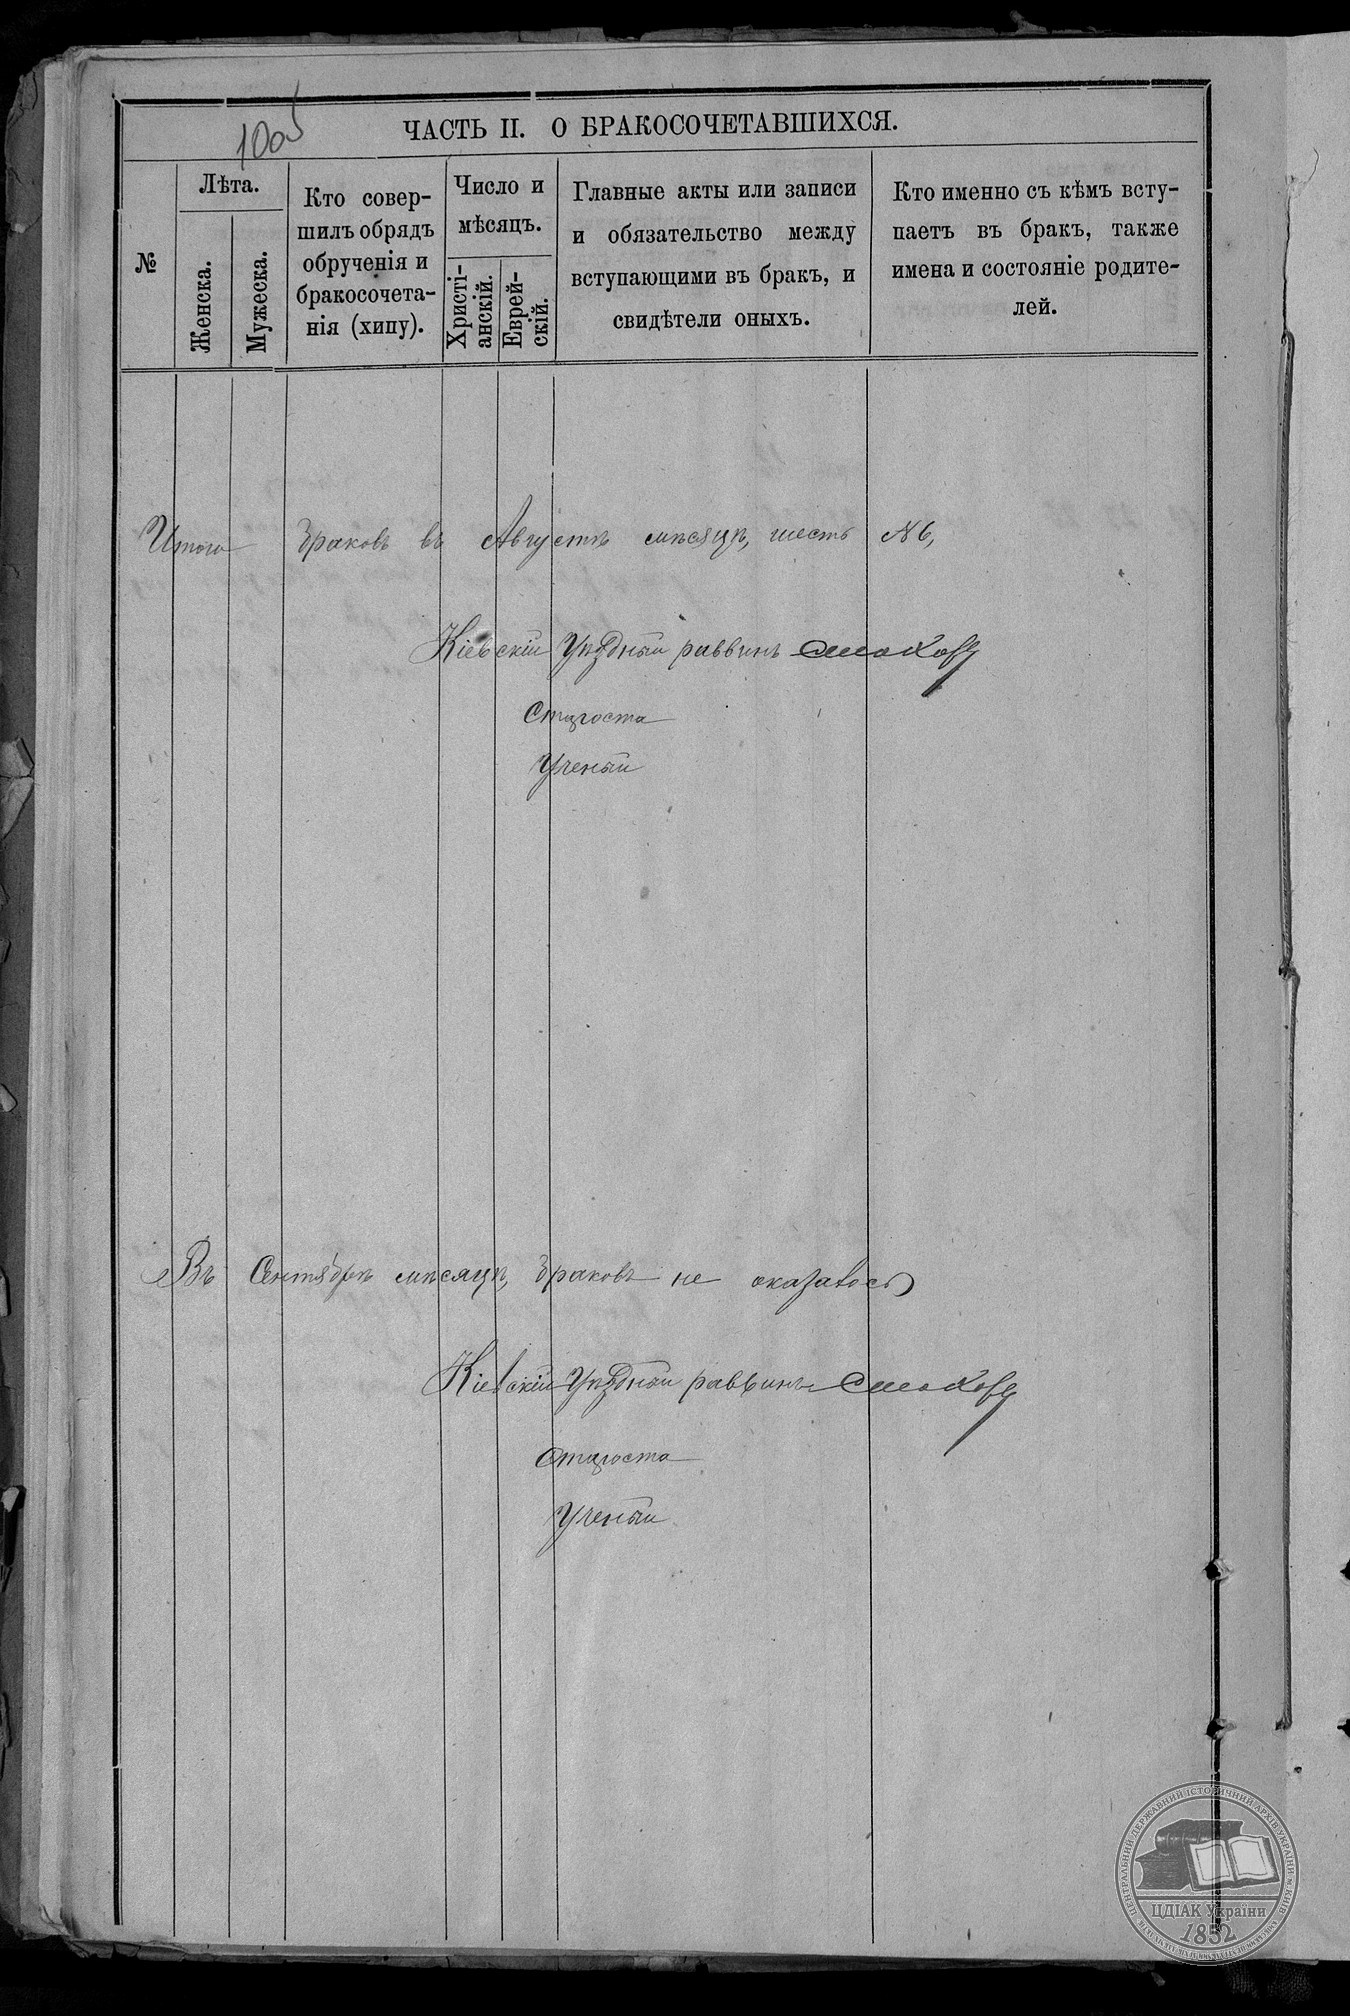 100
ЧАСТЬ II. О БРАКОСОЧЕТАВШИХСЯ.
№
Лѣта.
Женска.
Мужеска.
Кто совер-
шилъ обрядъ
обрученія и
бракосочета-
нія (хипу).
Число и
мѣсяцъ.
Христі-
анскій.
Еврей-
скій.
Главные акты или записи
и обязательство между
вступающими въ бракъ, и
свидѣтели оныхъ.
Кто именно съ кѣмъ всту-
паетъ въ бракъ, также
имена и состояніе родите-
лей.
Итого браковъ въ Августѣ мѣсяцѣ, шесть №6,
Кіевскій Уѣздный раввинъ
Староста
Ученый
Въ Сентябрѣ мѣсяцѣ, браковъ не оказалось
Кіевскій Уѣздный раввинъ
Староста
Ученый
ЦЕНТРАЛЬНИЙ ДЕРЖАВНИЙ ІСТОРИЧНИЙ АРХІВ УКРАЇНИ, м. КИЇВ
ЦДІАК України
1852